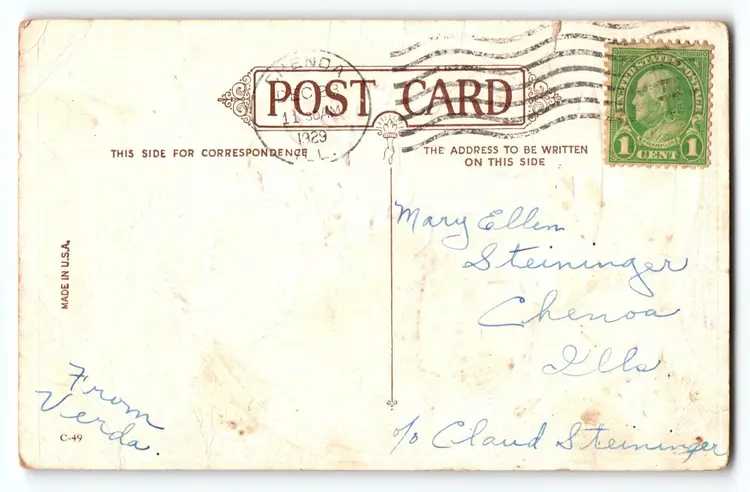 POST CARD
CHENOA
11 30 AM
1929
ILL.
UNITED STATES POSTAGE
FRANKLIN
1 CENT 1
THIS SIDE FOR CORRESPONDENCE
THE ADDRESS TO BE WRITTEN
ON THIS SIDE
MADE IN U.S.A.
Mary Ellen
Steininger
Chenoa
Ills.
From
Verda.
C-49
c/o Claud Steininger